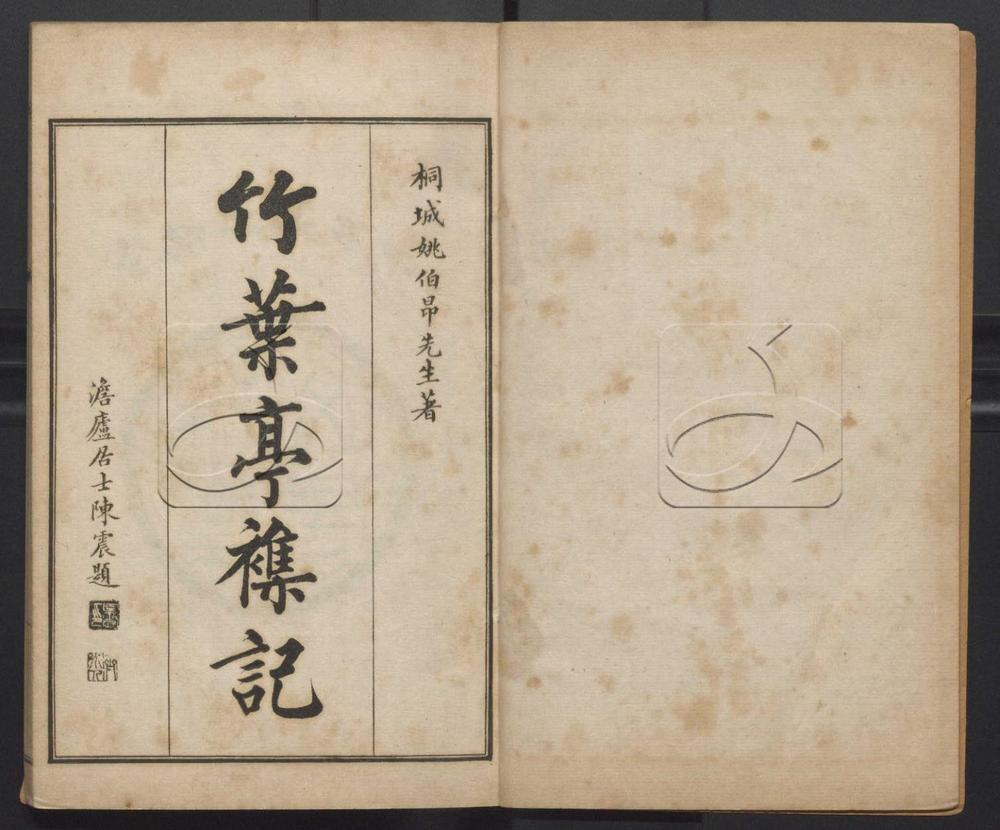 桐城姚伯昂先生著
竹葉亭襍記
澹廬居士陳震題